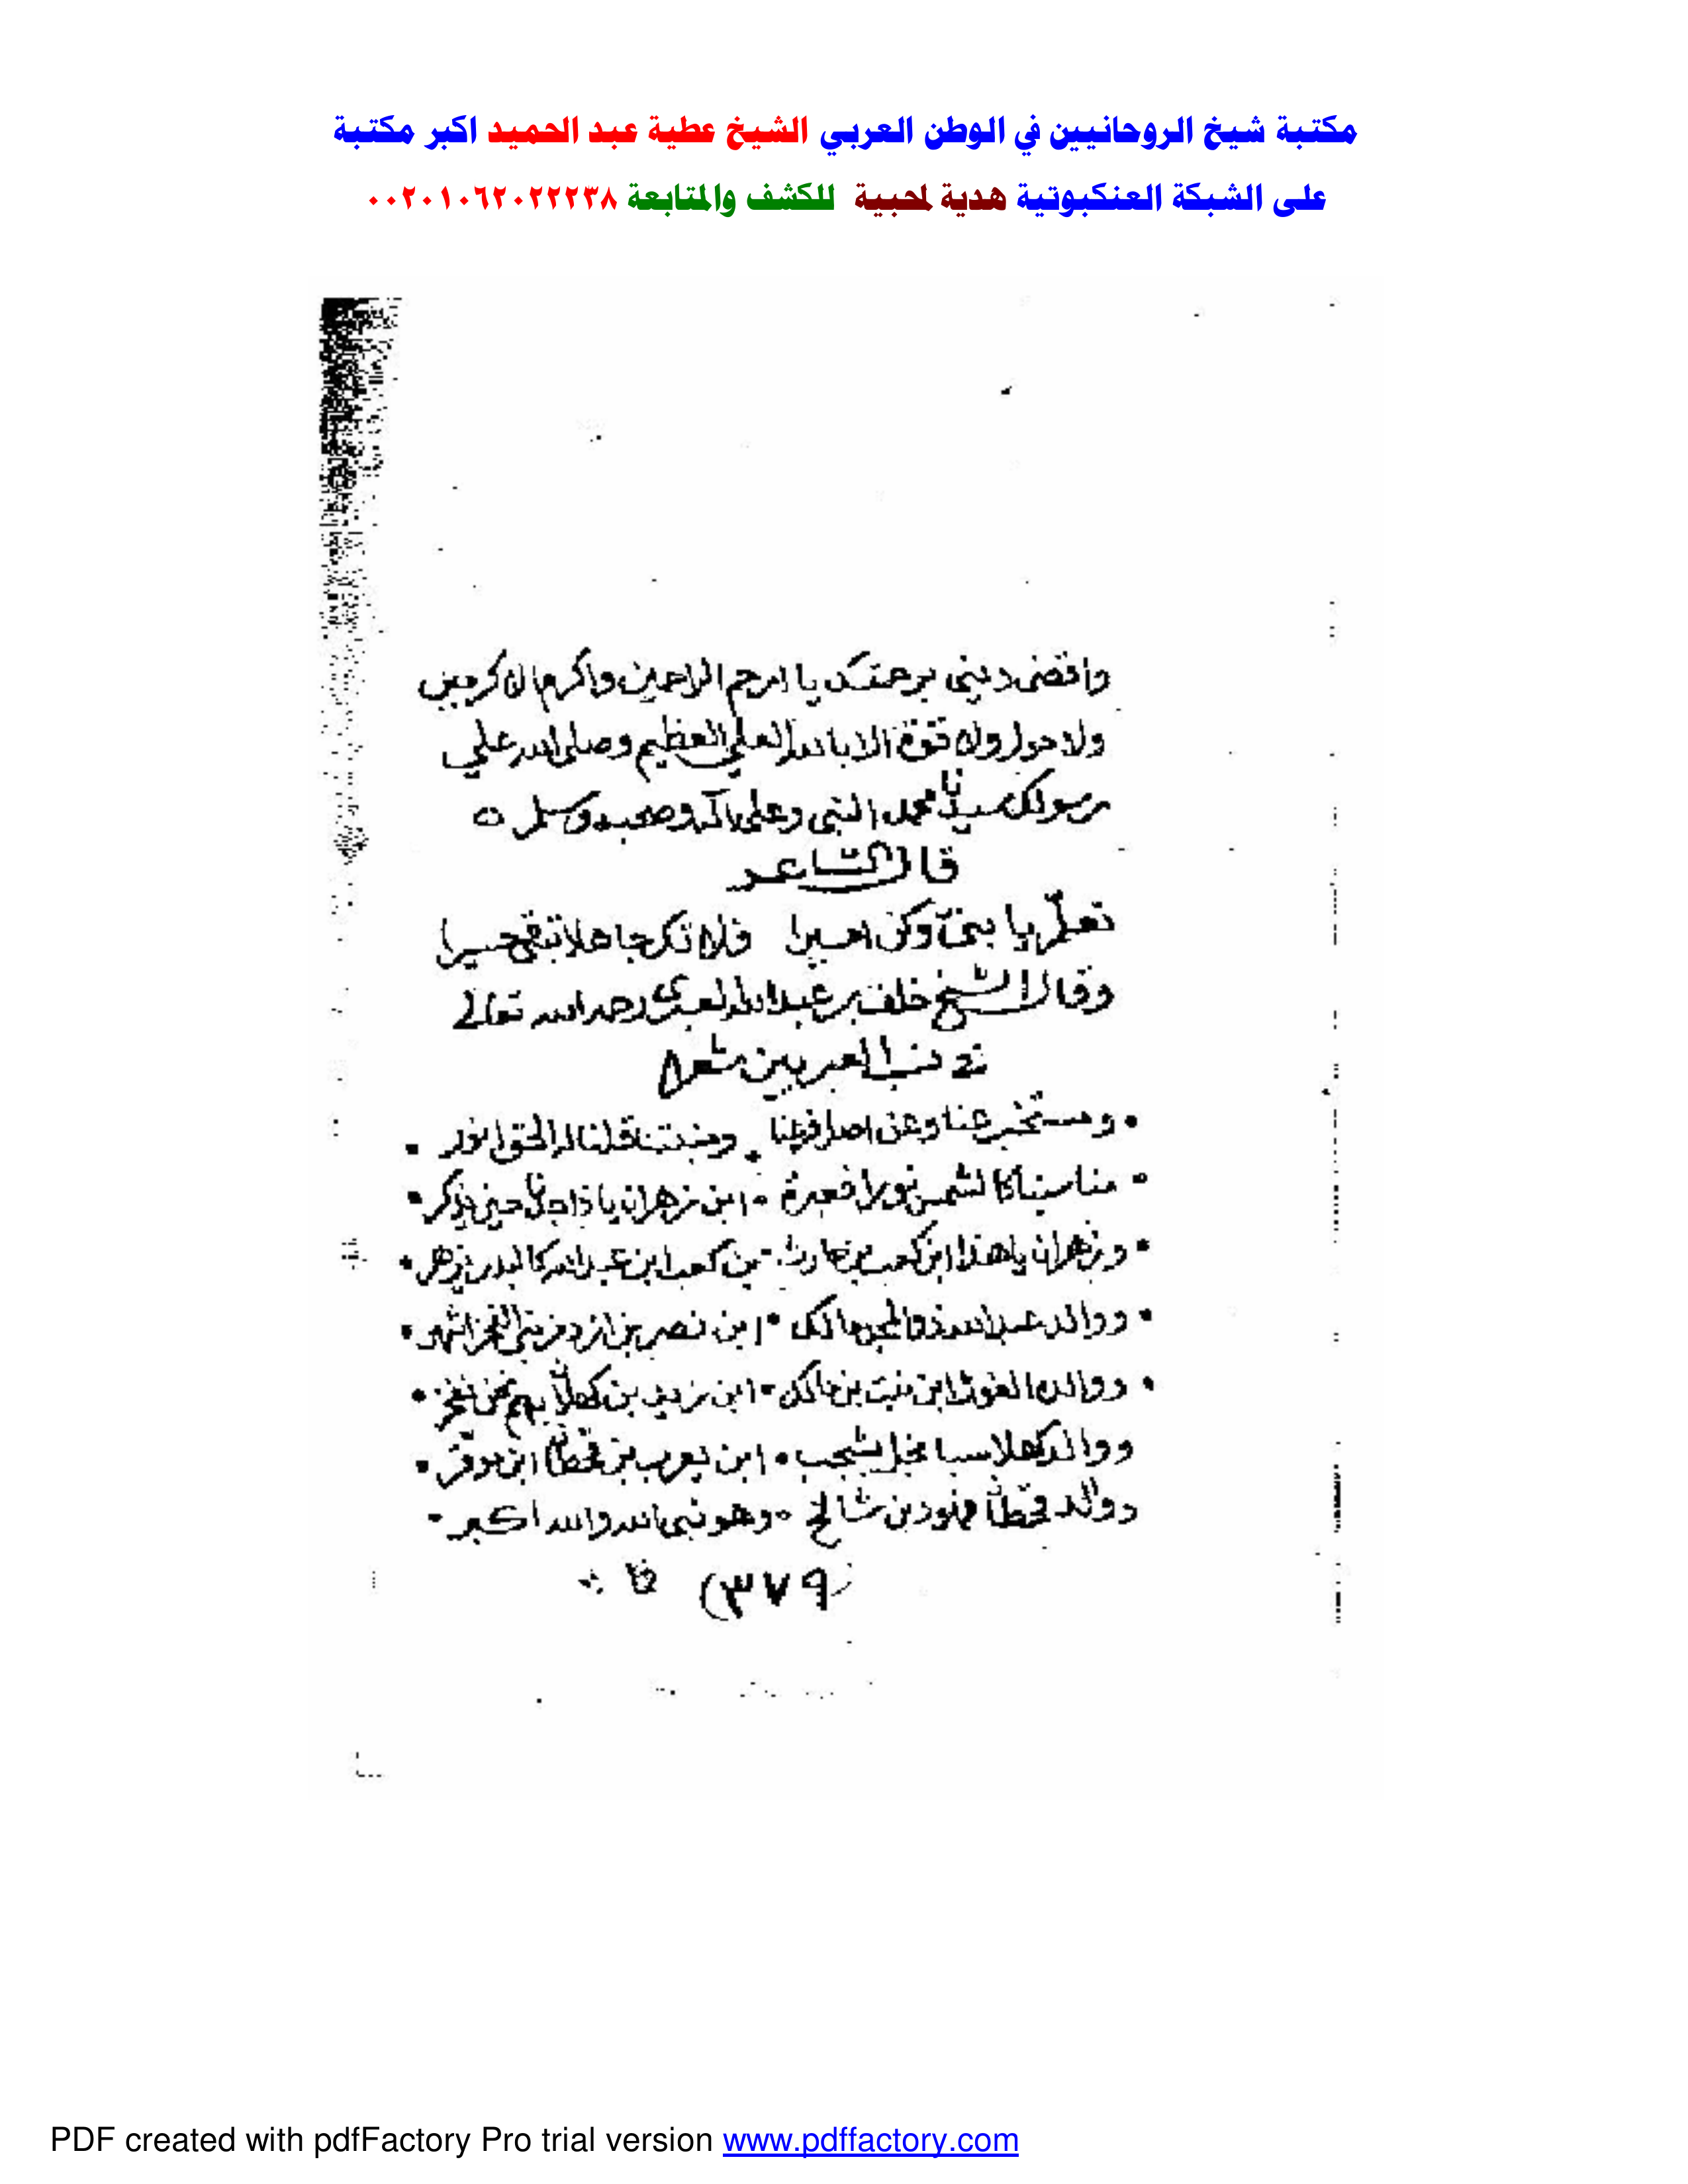 مكتبة شيخ الروحانيين في الوطن العربي الشيخ عطية عبد الحميد اكبر مكتبة
على الشبكة العنكبوتية هدية لمحبية للكشف والمتابعة ٠٠٢٠١٠٦٢٠٢٢٢٣٨
واقضى دينى برحمتك يا ارحم الراحمين واكرم الاكرمين
ولا حول ولا قوة الا بالله العلي العظيم وصلى الله علي
رسولك سيدنا محمد النبي وعلى اله وصحبه وسلم ٥
قال الشاعر
تعلم يا بنى وكن اميرا فلا تكن جاهلا تبقى حسيرا
وقال الشيخ خلف بن عبدالله العبرى رحمه الله تعالى
في نسب العبريين شعرا
• ومستخبر عنا وعن اصل فرعنا • وجدتنا قلنا له الحق انور •
• مناسبنا كالشمس نورا • ابن زهران يا ذا حين يذكر •
• وزهران يا هذا ابن كعب بن حارث • بن كعب ابن عبدالله كالبدر يزهر •
• ووالد عبدالله ذو المجد مالك • ابن نصر بن ازد •
• ووالده الغوث ابن نبت بن مالك • ابن زيد بن كهلان بهم نحن نفخر •
ووالد كهلان سبا نجل يشجب • ابن يعرب بن قحطان •
ووالد قحطان هود بن شالخ • وهو نبي الله والله اكبر •
(٣٧٩)
PDF created with pdfFactory Pro trial version www.pdffactory.com